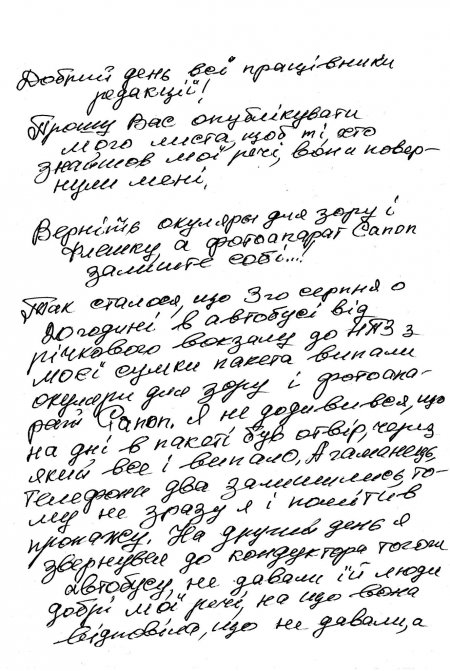 Добрий день всі працівники
редакції!
Прошу Вас опублікувати
мого листа, щоб ті, хто
знайшов мої речі, вони повер-
нули мені.
Верніть окуляры для зору і
флешку, а фотоапарат Canon
залиште собі...!
Так сталося, що 3го серпня о
20 годині в автобусі від
річкового вокзалу до НПЗ з
моєї сумки пакета випали
окуляри для зору і фотоапа-
рат Canon. Я не додивився, що
на дні в пакеті був отвір, через
який все і випало, А гаманець,
телефони два залишились, то-
му не зразу я і помітив
пропажу. На другий день я
звернувся до кондуктора того ж
автобусу, не давали їй люди
добрі мої речі, на що вона
відповіла, що не давали, а